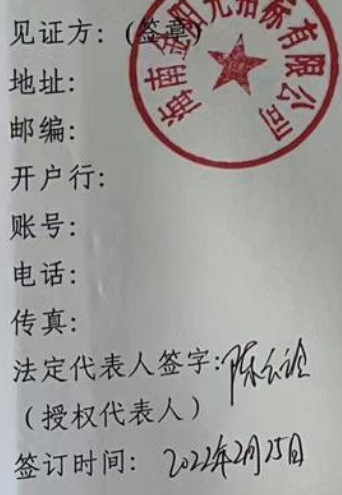 海南金阳光招标有限公司
见证方：(签章)
地址：
邮编：
开户行：
账号：
电话：
传真：
法定代表人签字：陈
（授权代表人）
签订时间：2022年2月25日